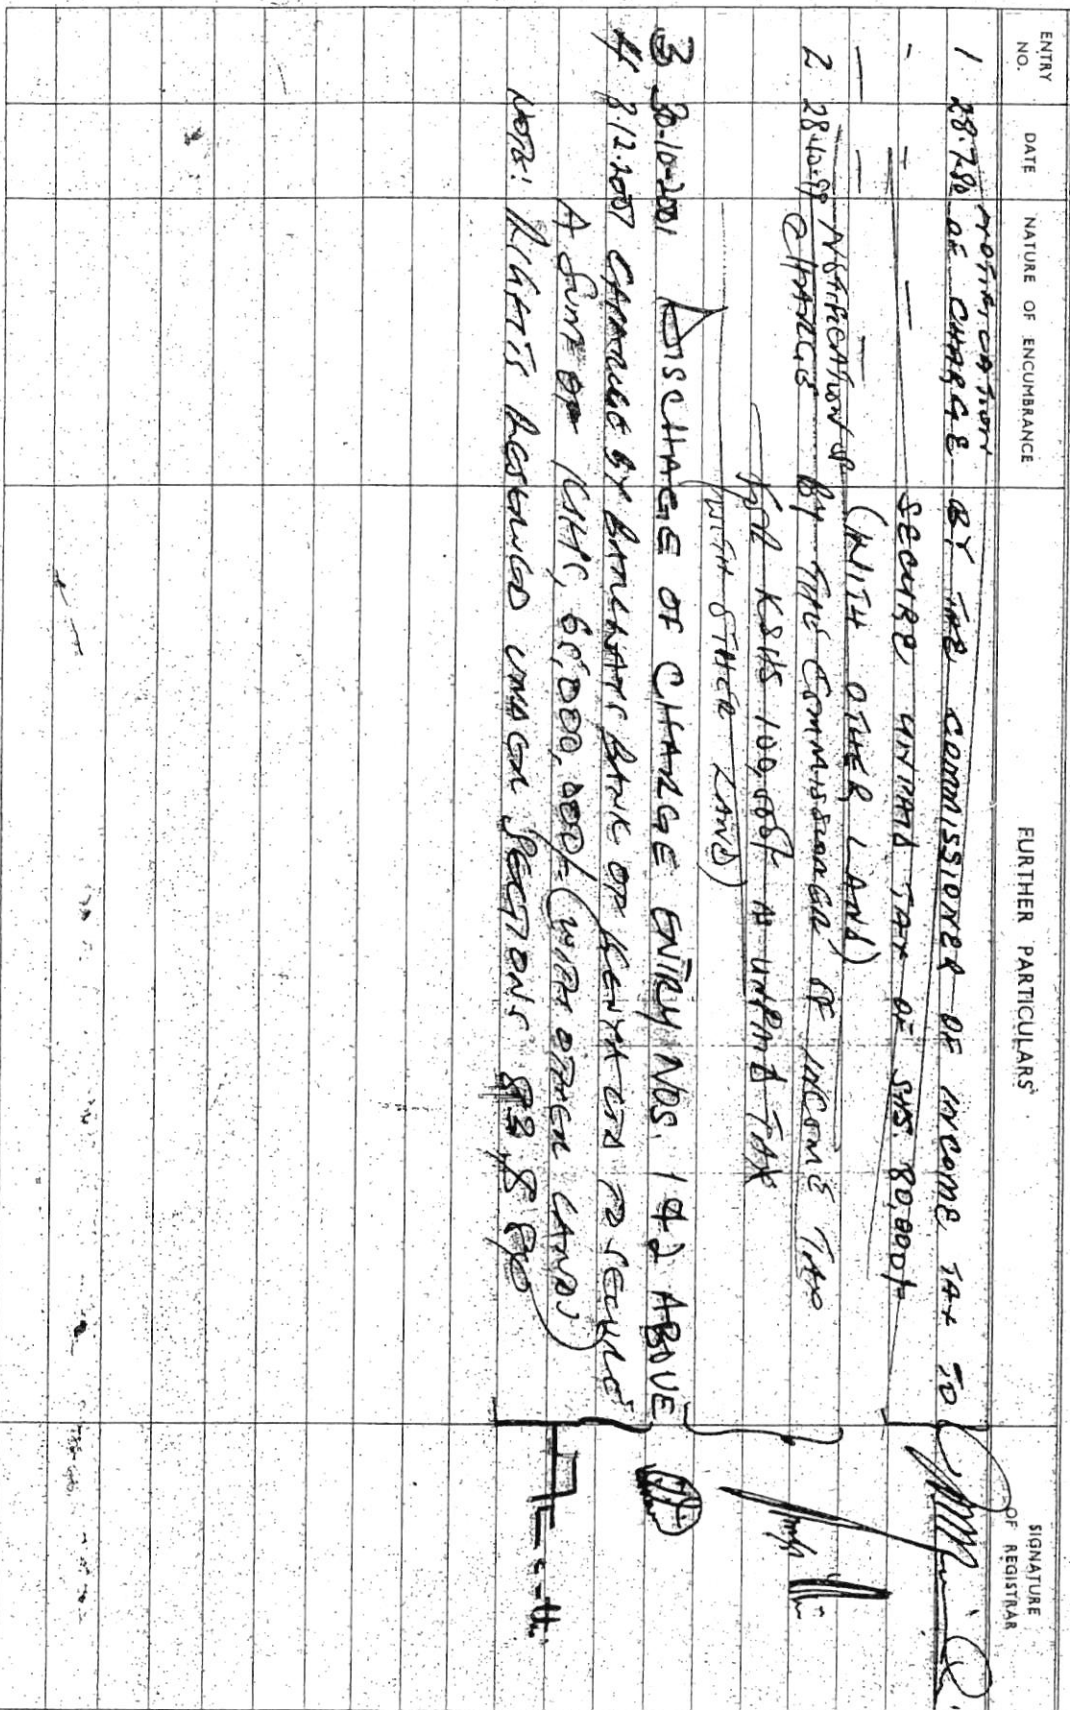 ENTRY NO. DATE NATURE OF ENCUMBRANCE FURTHER PARTICULARS SIGNATURE OF REGISTRAR
NOTIFICATION
1. 28.7.80 OF CHARGE BY THE COMMISSIONER OF INCOME TAX TO
SECURE UNPAID TAX OF SHS. 80,000/-
(WITH OTHER LAND)
2 NOTIFICATION OF
CHARGE BY THE COMMISSIONER OF INCOME TAX
FOR KSHS 100,000/- AS UNPAID TAX
(WITH OTHER LAND)
3 30-10-2001 DISCHAGE OF CHARGE ENTRY NOS. 1 & 2 ABOVE
4 8.12.2001 CHARGE BY BARCLAYS BANK OF KENYA LTD TO SECURE
A SUM OF KSHS, 65,000,000/= (WITH OTHER LAND)
NOTE: RIGHTS RESERVED UNDER SECTIONS 83 &